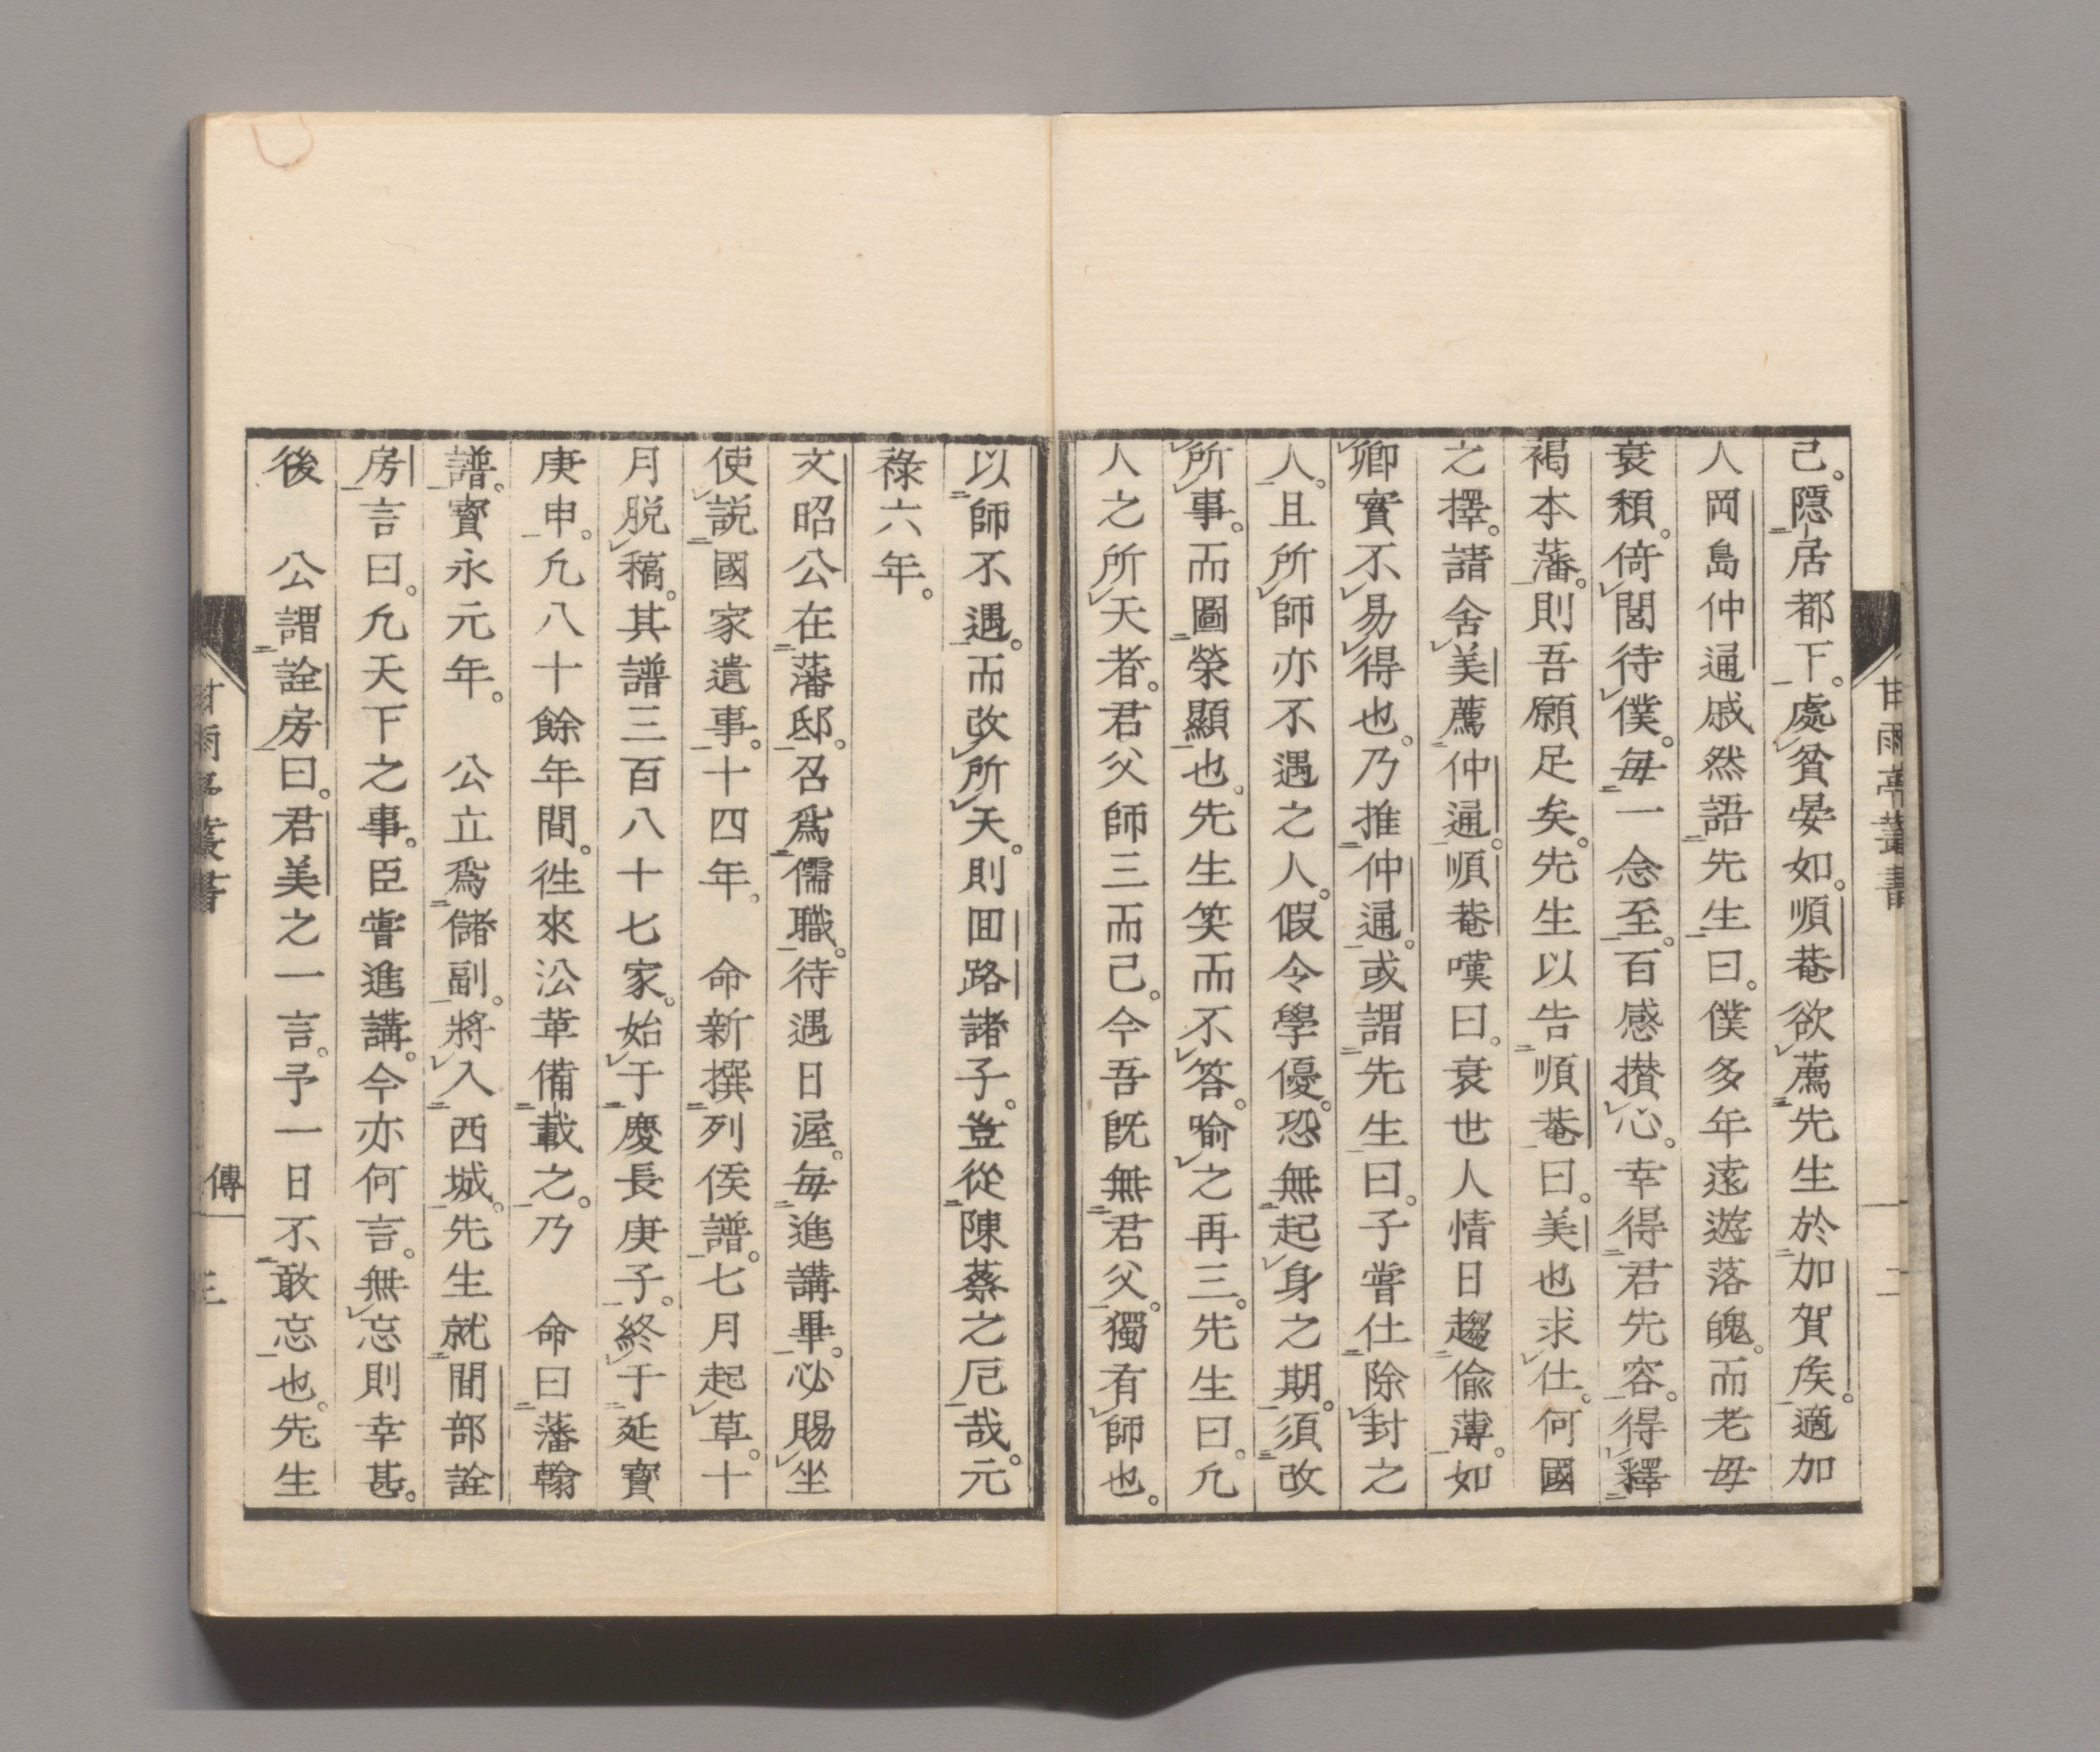 己。隱居都下。處貧晏如。順菴欲薦先生於加賀矦。適加
人岡島仲通戚然語先生曰。僕多年遠遊落魄。而老毋
衰頽。倚閭待僕。毎一念至。百感攅心。幸得君先容。得釋
褐本藩。則吾願足矣。先生以告順菴曰。美也求仕。何國
之擇。請舍美薦仲通。順菴嘆曰。衰世人情日趨偸薄。如
卿實不易得也。乃推仲通。或謂先生曰。子嘗仕除封之
人。且所師亦不遇之人。假令學優。恐無起身之期。須改
所事。而圖榮顯也。先生笑而不答。喻之再三。先生曰。凢
人之所天者。君父師三而己。今吾既無君父。獨有師也。
以師不遇。而改所天。則回路諸子。豈從陳蔡之厄哉。元
祿六年。
文昭公在藩邸。召爲儒職。待遇日渥。毎進講畢。必賜坐
使説國家遺事。十四年。　命新撰列侯譜。七月起草。十
月脱稿。其譜三百八十七家。始于慶長庚子。終于延寶
庚申。凢八十餘年間。徃來沿革備載之。乃　命曰藩翰
譜。寳永元年。　公立爲儲副。將入西城。先生就間部詮
房言曰。凢天下之事。臣嘗進講。今亦何言。無忘則幸甚。
後　公謂詮房曰。君美之一言。予一日不敢忘也。先生
甘雨亭叢書
傳
三